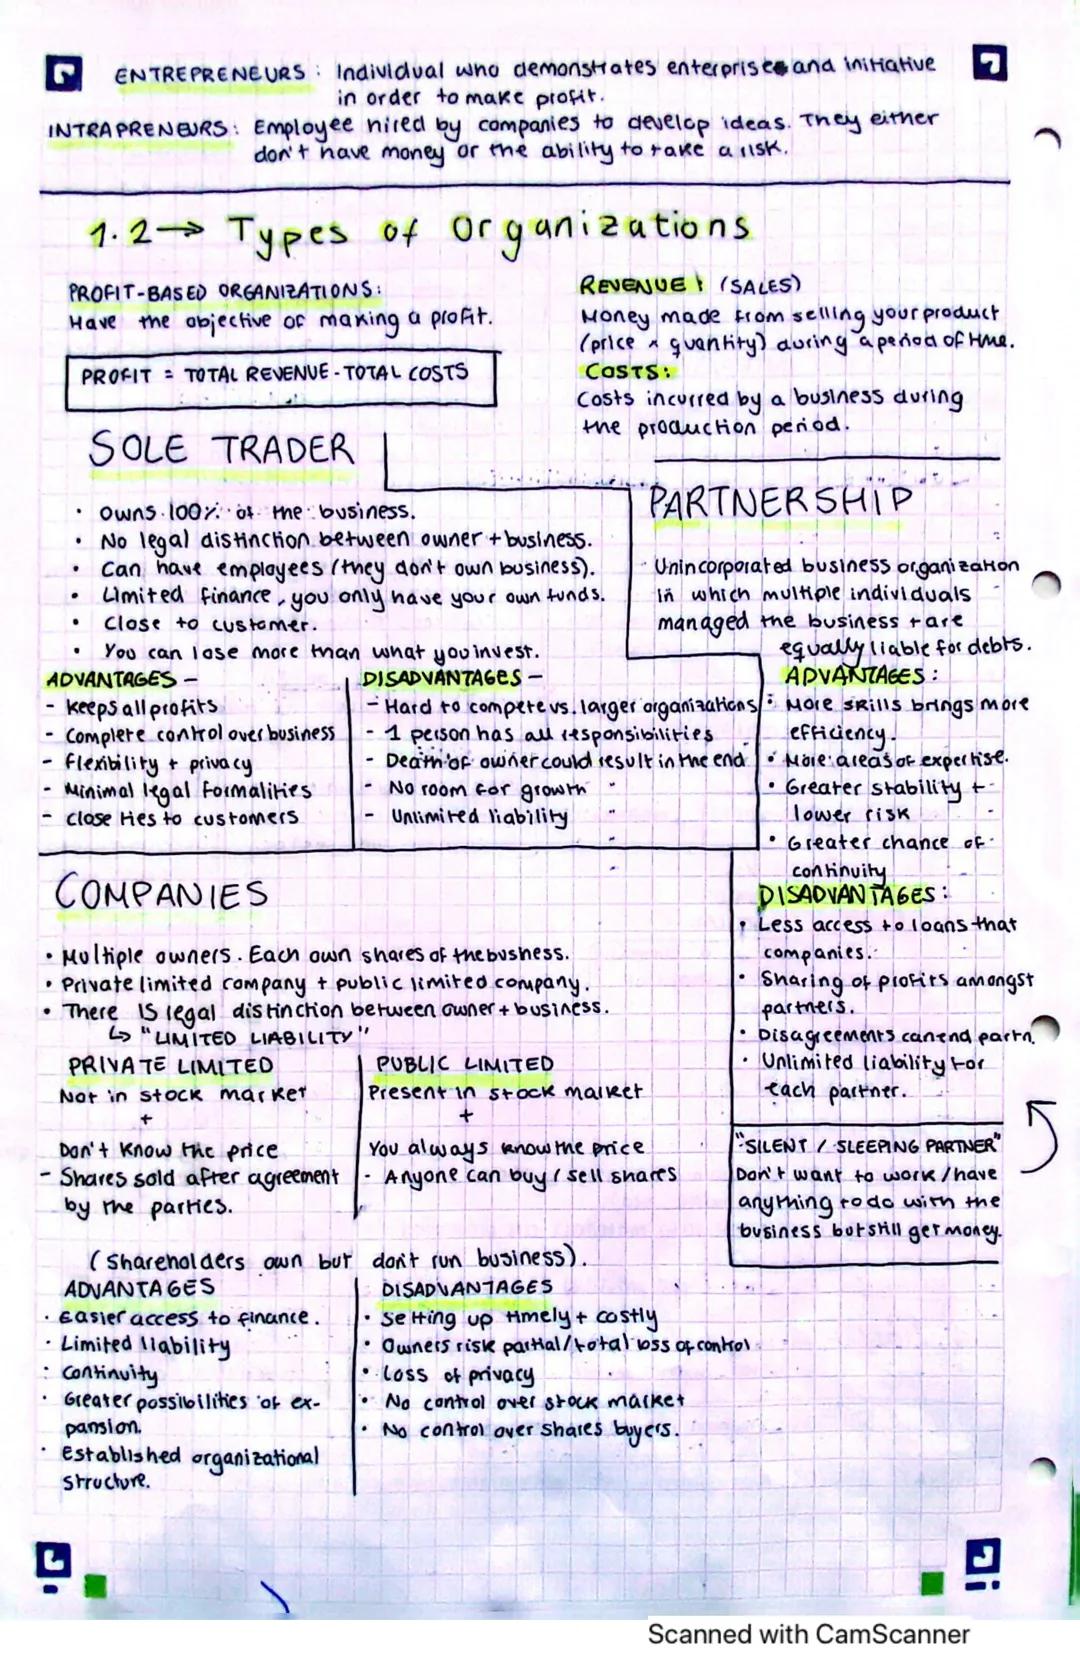 ENTREPRENEURS: Individual who demonstrates enterprises and initiative
in order to make profit.
INTRAPRENEURS: Employee hired by companies to develop ideas. They either
don't have money or the ability to take a risk.
1.2→ Types of Organizations
PROFIT-BASED ORGANIZATIONS:
Have the objective of making a profit.
PROFIT = TOTAL REVENUE - TOTAL COSTS
REVENUE: (SALES)
Money made from selling your product
(price x quantity) during a period of time.
COSTS:
Costs incurred by a business during
the production period.
SOLE TRADER
• Owns 100% of the business.
• No legal distinction between owner + business.
• Can have employees (they don't own business).
• Limited finance, you only have your own funds.
• Close to customer.
• You can lose more than what you invest.
ADVANTAGES -
- Keeps all profits
- Complete control over business
- Flexibility + privacy
- Minimal legal formalities
- Close ties to customers
DISADVANTAGES -
- Hard to compete vs. larger organizations
- 1 person has all responsibilities
- Death of owner could result in the end
- No room for growth
- Unlimited liability
PARTNERSHIP
Unincorporated business organization
in which multiple individuals
managed the business + are
equally liable for debts.
ADVANTAGES:
• More skills brings more
efficiency.
• More areas of expertise.
• Greater stability +
lower risk
• Greater chance of
continuity
DISADVANTAGES:
• Less access to loans that
companies.
• Sharing of profits amongst
partners.
• Disagreements can end partn.
• Unlimited liability for
each partner.
"SILENT / SLEEPING PARTNER"
Don't want to work / have
anything to do with the
business but still get money.
COMPANIES
• Multiple owners. Each own shares of the business.
• Private limited company + public limited company.
• There IS legal distinction between owner + business.
↳ "LIMITED LIABILITY"
PRIVATE LIMITED
Not in stock market
+
Don't know the price
- Shares sold after agreement
by the parties.
PUBLIC LIMITED
Present in stock market
+
You always know the price
- Anyone can buy / sell shares
(Shareholders own but don't run business).
ADVANTAGES
• Easier access to finance.
• Limited liability
• Continuity
• Greater possibilities of ex-
pansion.
• Established organizational
structure.
DISADVANTAGES
• Setting up timely + costly
• Owners risk partial/total loss of control
• Loss of privacy
• No control over stock market
• No control over shares buyers.
Scanned with CamScanner